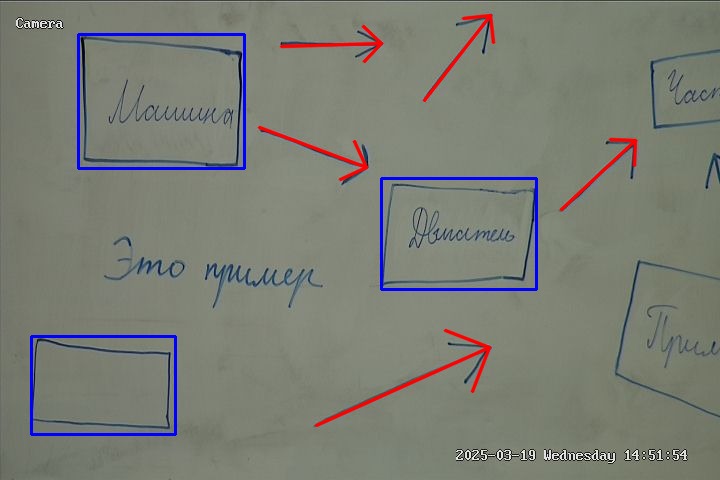 Camera
Машина
Част
Двигатель
Это пример
Прим
2025-03-19 Wednesday 14:51:54